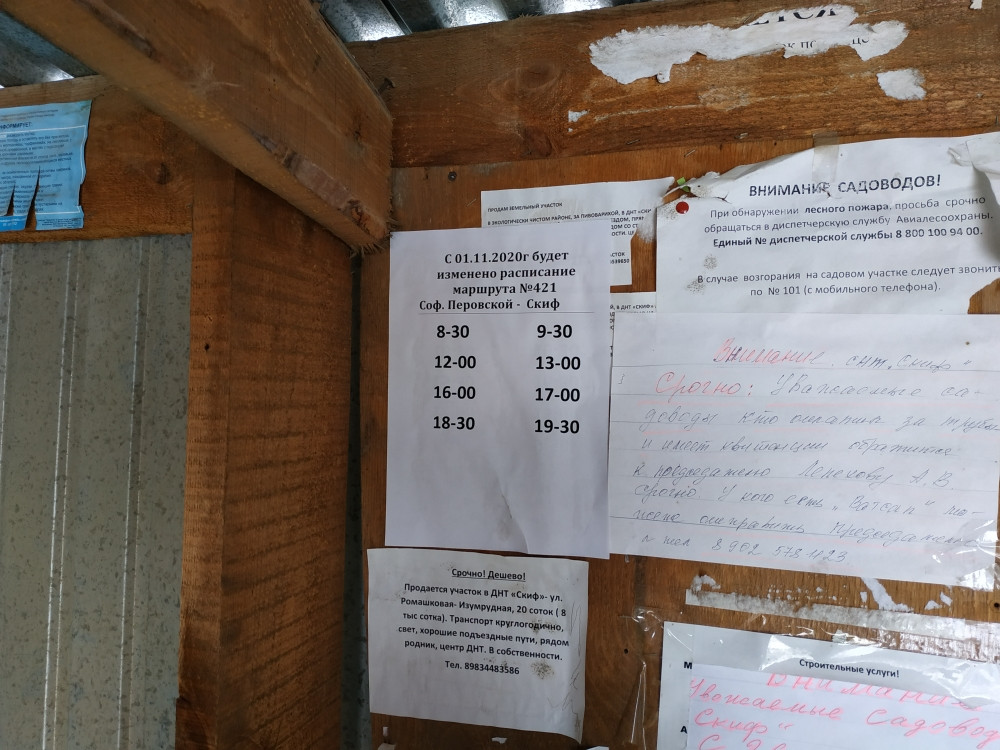 ЕТСЯ
ФОРМИРУЕТ:
ПРОДАМ ЗЕМЕЛЬНЫЙ УЧАСТОК
В ЭКОЛОГИЧЕСКИ ЧИСТОМ РАЙОНЕ, ЗА ПИВОВАРИХОЙ, В ДНТ «СКИ
С 01.11.2020г будет
изменено расписание
маршрута №421
Соф. Перовской - Скиф
8-30 9-30
12-00 13-00
16-00 17-00
18-30 19-30
ВНИМАНИЕ САДОВОДОВ!
При обнаружении лесного пожара, просьба срочно
обращаться в диспетчерскую службу Авиалесоохраны.
Единый № диспетчерской службы 8 800 100 94 00.
В случае возгорания на садовом участке следует звонить
по № 101 (с мобильного телефона).
Внимание снт „Скиф"
Срочно: Уважаемые са-
доводы кто оплатил за трубы
и имеет квитанции обратитесь
к председателю А.В.
срочно У кого есть „Ватсап" мо-
жете отправить председателю
тел 8 902 578 1123
Срочно! Дешево!
Продается участок в ДНТ «Скиф»- ул.
Ромашковая- Изумрудная, 20 соток ( 8
тыс сотка). Транспорт круглогодично,
свет, хорошие подъездные пути, рядом
родник, центр ДНТ. В собственности.
Тел. 89834483586
Строительные услуги!
Внимани
Уважаемые Садовод
Скиф"